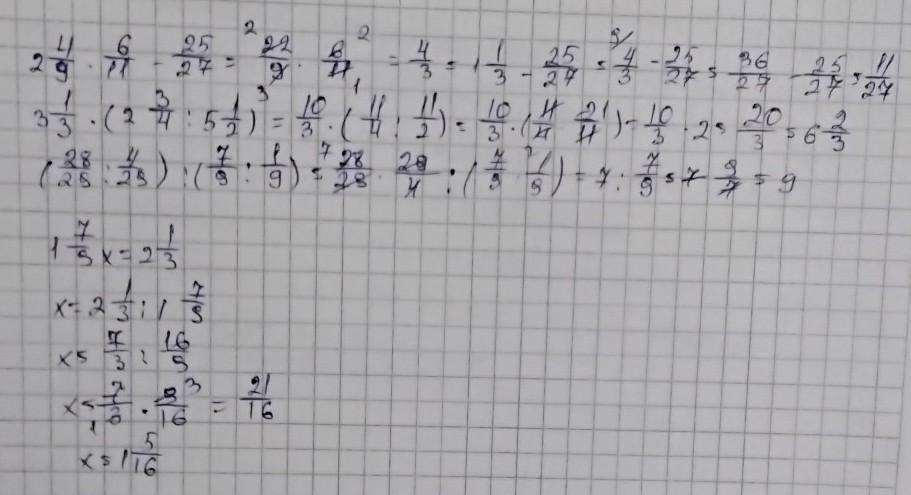 2 4/9 · 6/11 - 25/27 = 22/9 · 6/11 = 4/3 = 1 1/3 - 25/27 = 4/3 - 25/27 = 36/27 - 25/27 = 11/27
3 1/3 · (2 3/4 : 5 1/2) = 10/3 · (11/4 : 11/2) = 10/3 · (11/4 · 21/11) = 10/3 · 2 = 20/3 = 6 2/3
(28/29 : 4/29) : (7/9 : 1/9) = 28/29 · 29/4 : (7/9 · 1/9) = 7 : 7/9 = 7 9/7 = 9
1 7/9 x = 2 1/3
x = 2 1/3 : 1 7/9
x = 7/3 : 16/9
x = 7/3 · 9/16 = 21/16
x = 1 5/16